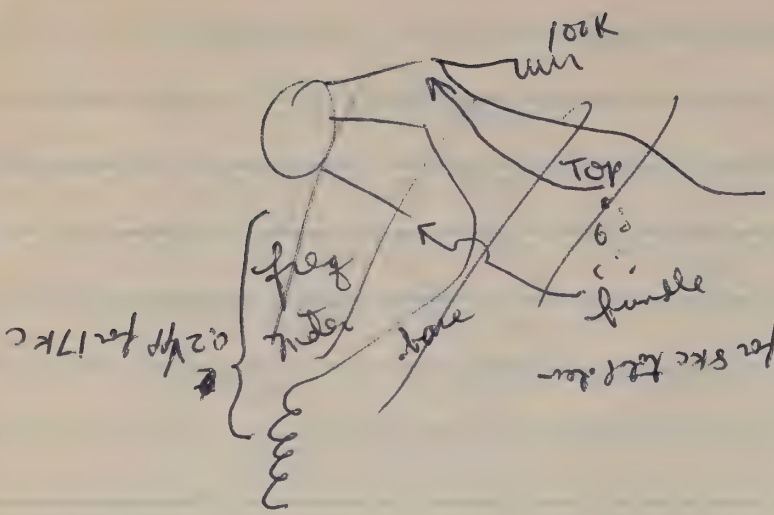 100K
TOP
freq
meter
bare
bundle
0.2 Vpp for 17KC
for 8KC